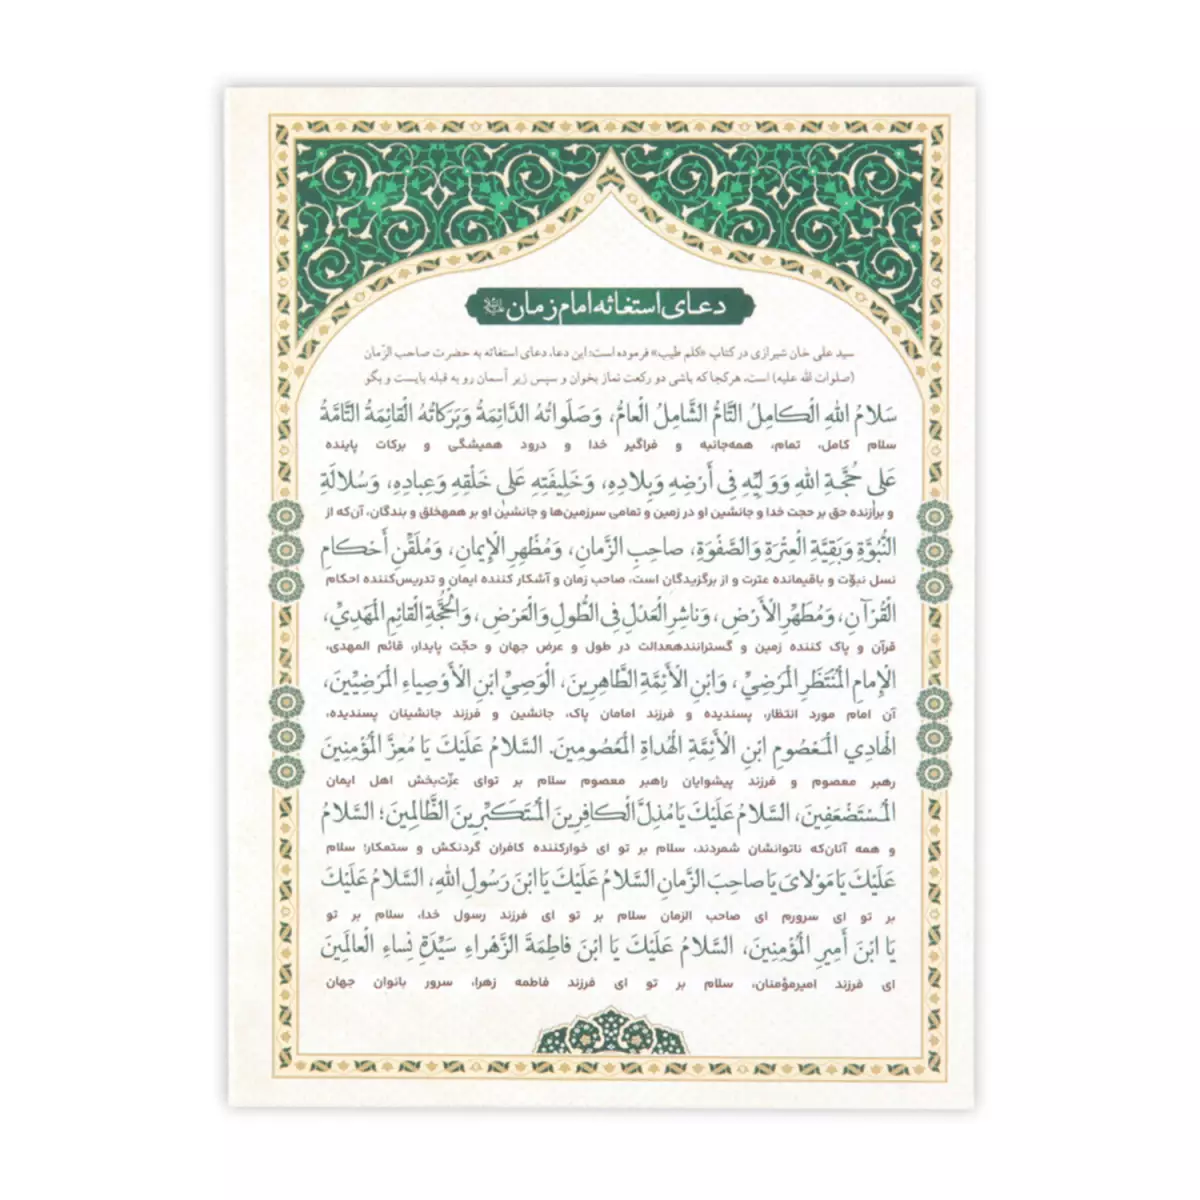 دعای استغاثه امام زمان
سید علی خان شیرازی در کتاب «کلم طیب» فرموده است: این دعا، دعای استغاثه به حضرت صاحب الزّمان
(صلوات الله علیه) است، هرکجا که باشی دو رکعت نماز بخوان و سپس زیر آسمان رو به قبله بایست و بگو
سَلامُ اللهِ الْكامِلُ التّامُّ الشّامِلُ الْعامُّ، وَصَلَواتُهُ الدّائِمَةُ وَبَرَكاتُهُ الْقائِمَةُ التّامَّةُ
سلام کامل، تمام، همه‌جانبه و فراگیر خدا و درود همیشگی و برکات پاینده
عَلى حُجَّةِ اللهِ وَوَلِيِّهِ في أَرْضِهِ وَبِلادِهِ، وَخَليفَتِهِ عَلى خَلْقِهِ وَعِبادِهِ، وَسُلالَةِ
و برازنده حق بر حجت خدا و جانشین او در زمین و تمامی سرزمین‌ها و جانشین او بر همهخلق و بندگان، آن‌که از
النُّبُوَّةِ وَبَقِيَّةِ الْعِتْرَةِ وَالصَّفْوَةِ، صاحِبِ الزَّمانِ، وَمُظْهِرِ الْإيمانِ، وَمُلَقِّنِ أَحْكامِ
نسل نبوّت و باقیمانده عترت و از برگزیدگان است، صاحب زمان و آشکار کننده ایمان و تدریس‌کننده احکام
الْقُرْآنِ، وَمُطَهِّرِ الْأَرْضِ، وَناشِرِ الْعَدْلِ فِي الطُّولِ وَالْعَرْضِ، وَالْحُجَّةِ الْقائِمِ الْمَهْدِيِّ،
قرآن و پاک کننده زمین و گسترانندهعدالت در طول و عرض جهان و حجّت پایدار، قائم المهدی،
الْإِمامِ الْمُنْتَظَرِ الْمَرْضِيِّ، وَابْنِ الْأَئِمَّةِ الطّاهِرِينَ، الْوَصِيِّ ابْنِ الْأَوْصِياءِ الْمَرْضِيِّينَ،
آن امام مورد انتظار، پسندیده و فرزند امامان پاک، جانشین و فرزند جانشینان پسندیده،
الْهادِي الْمَعْصُومِ ابْنِ الْأَئِمَّةِ الْهُداةِ الْمَعْصُومِينَ. السَّلامُ عَلَيْكَ يَا مُعِزَّ الْمُؤْمِنِينَ
رهبر معصوم و فرزند پیشوایان راهبر معصوم سلام بر توای عزّت‌بخش اهل ایمان
الْمُسْتَضْعَفِينَ، السَّلامُ عَلَيْكَ يَا مُذِلَّ الْكافِرِينَ الْمُتَكَبِّرِينَ الظَّالِمِينَ؛ السَّلامُ
و همه آنان‌که ناتوانشان شمردند، سلام بر تو ای خوارکننده کافران گردنکش و ستمکار؛ سلام
عَلَيْكَ يَا مَوْلایَ يَا صاحِبَ الزَّمانِ السَّلامُ عَلَيْكَ يَا ابْنَ رَسُولِ اللهِ، السَّلامُ عَلَيْكَ
بر تو ای سرورم ای صاحب الزمان سلام بر تو ای فرزند رسول خدا، سلام بر تو
يَا ابْنَ أَمِيرِ الْمُؤْمِنِينَ، السَّلامُ عَلَيْكَ يَا ابْنَ فاطِمَةَ الزَّهْراءِ سَيِّدَةِ نِساءِ الْعالَمِينَ
ای فرزند امیرمؤمنان، سلام بر تو ای فرزند فاطمه زهرا، سرور بانوان جهان